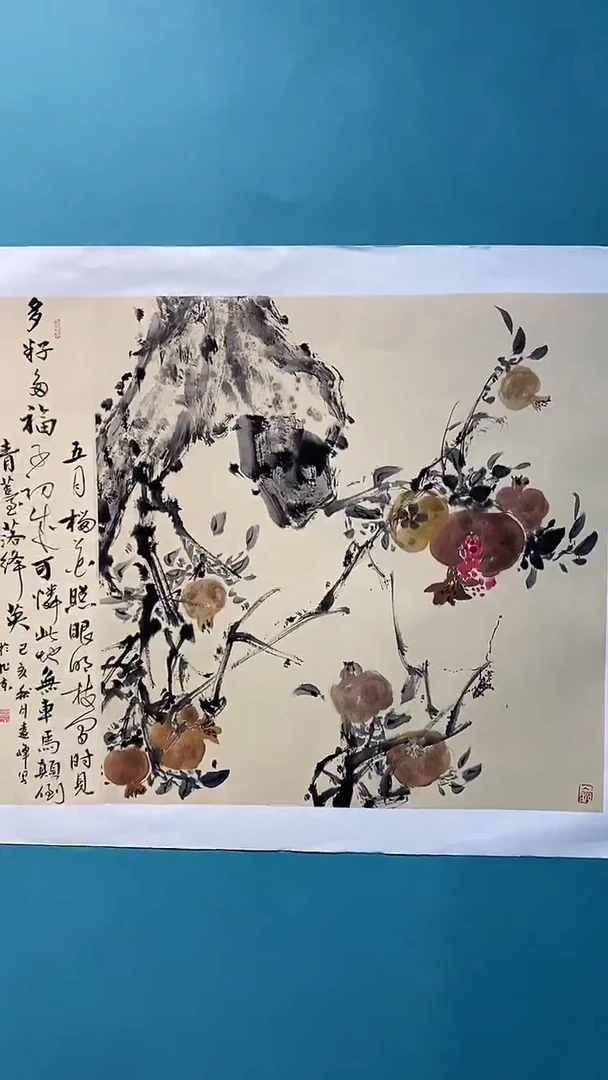 多籽多福
五月榴花照眼明枝間時見
子初成可憐此地無車馬顛倒
青薹落絳英
己亥秋月
於北京